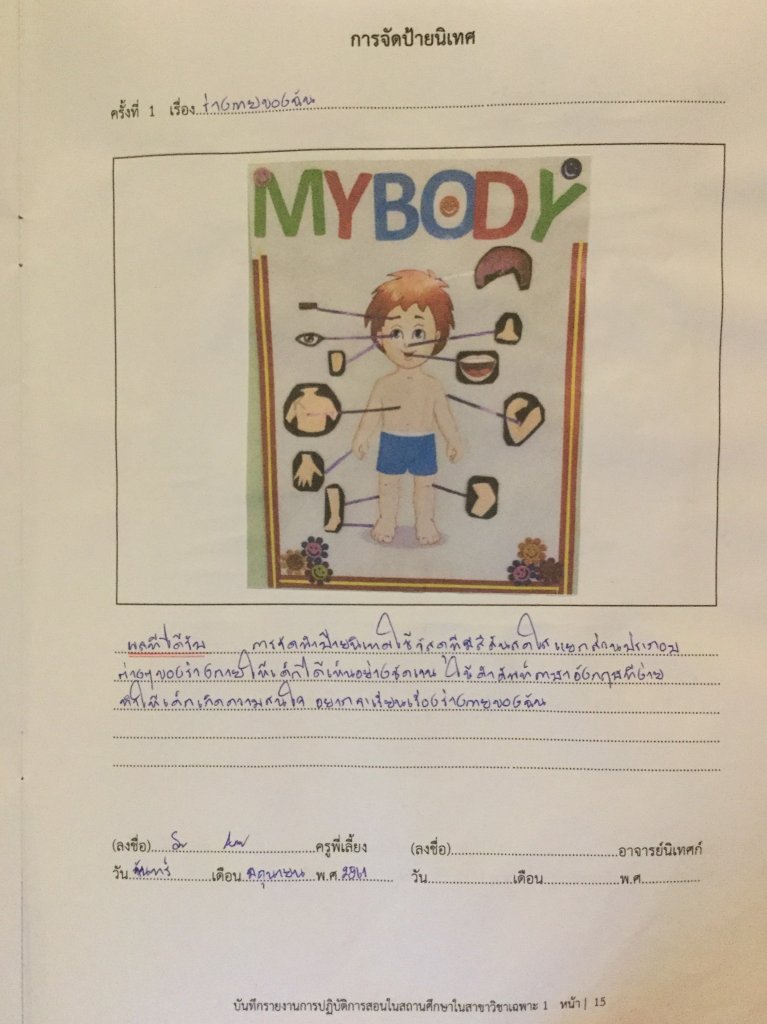 การจัดป้ายนิเทศ
ครั้งที่ 1 เรื่อง ร่างกายของฉัน
MYBODY
ผลที่ได้รับ การจัดทำป้ายนิเทศใช้วัสดุที่มีสีสันสดใส แยกส่วนประกอบ
ต่างๆของร่างกายให้เด็กได้เห็นอย่างชัดเจน ใช้คำศัพท์ภาษาอังกฤษที่ง่าย
ทำให้เด็กเกิดความสนใจ อยากจะเรียนเรื่องร่างกายของฉัน
(ลงชื่อ) ครูพี่เลี้ยง (ลงชื่อ) อาจารย์นิเทศก์
วัน จันทร์ เดือน มิถุนายน พ.ศ. 2561 วัน เดือน พ.ศ.
บันทึกรายงานการปฏิบัติการสอนในสถานศึกษาในสาขาวิชาเฉพาะ 1 หน้า | 15